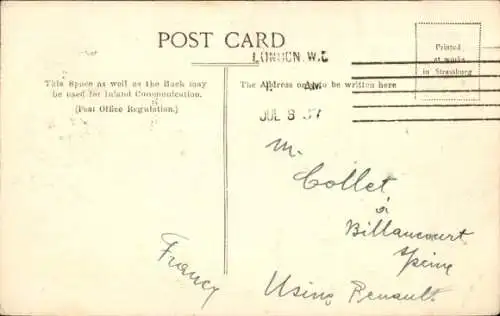 POST CARD
LONDON. W.C
Printed
at works
in Strassburg
This Space as well as the Back may
be used for Inland Communication.
(Post Office Regulation.)
The Address only to be written here
AM
JUL 8 07
M.
Collet
à
Billancourt
Seine
Usine Renault
France